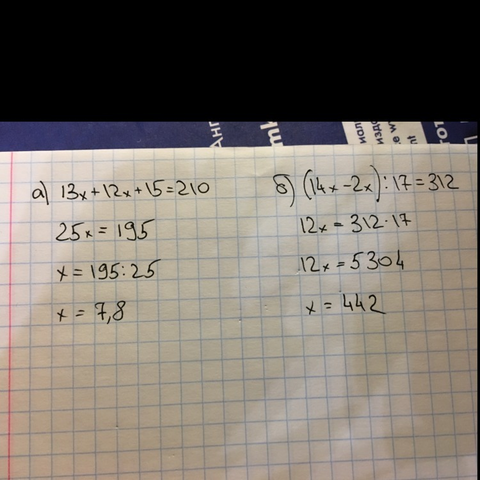 а) 13x+12x+15=210
25x=195
x=195:25
x=7,8
б) (14x-2x):17=312
12x=312·17
12x=5304
x=442